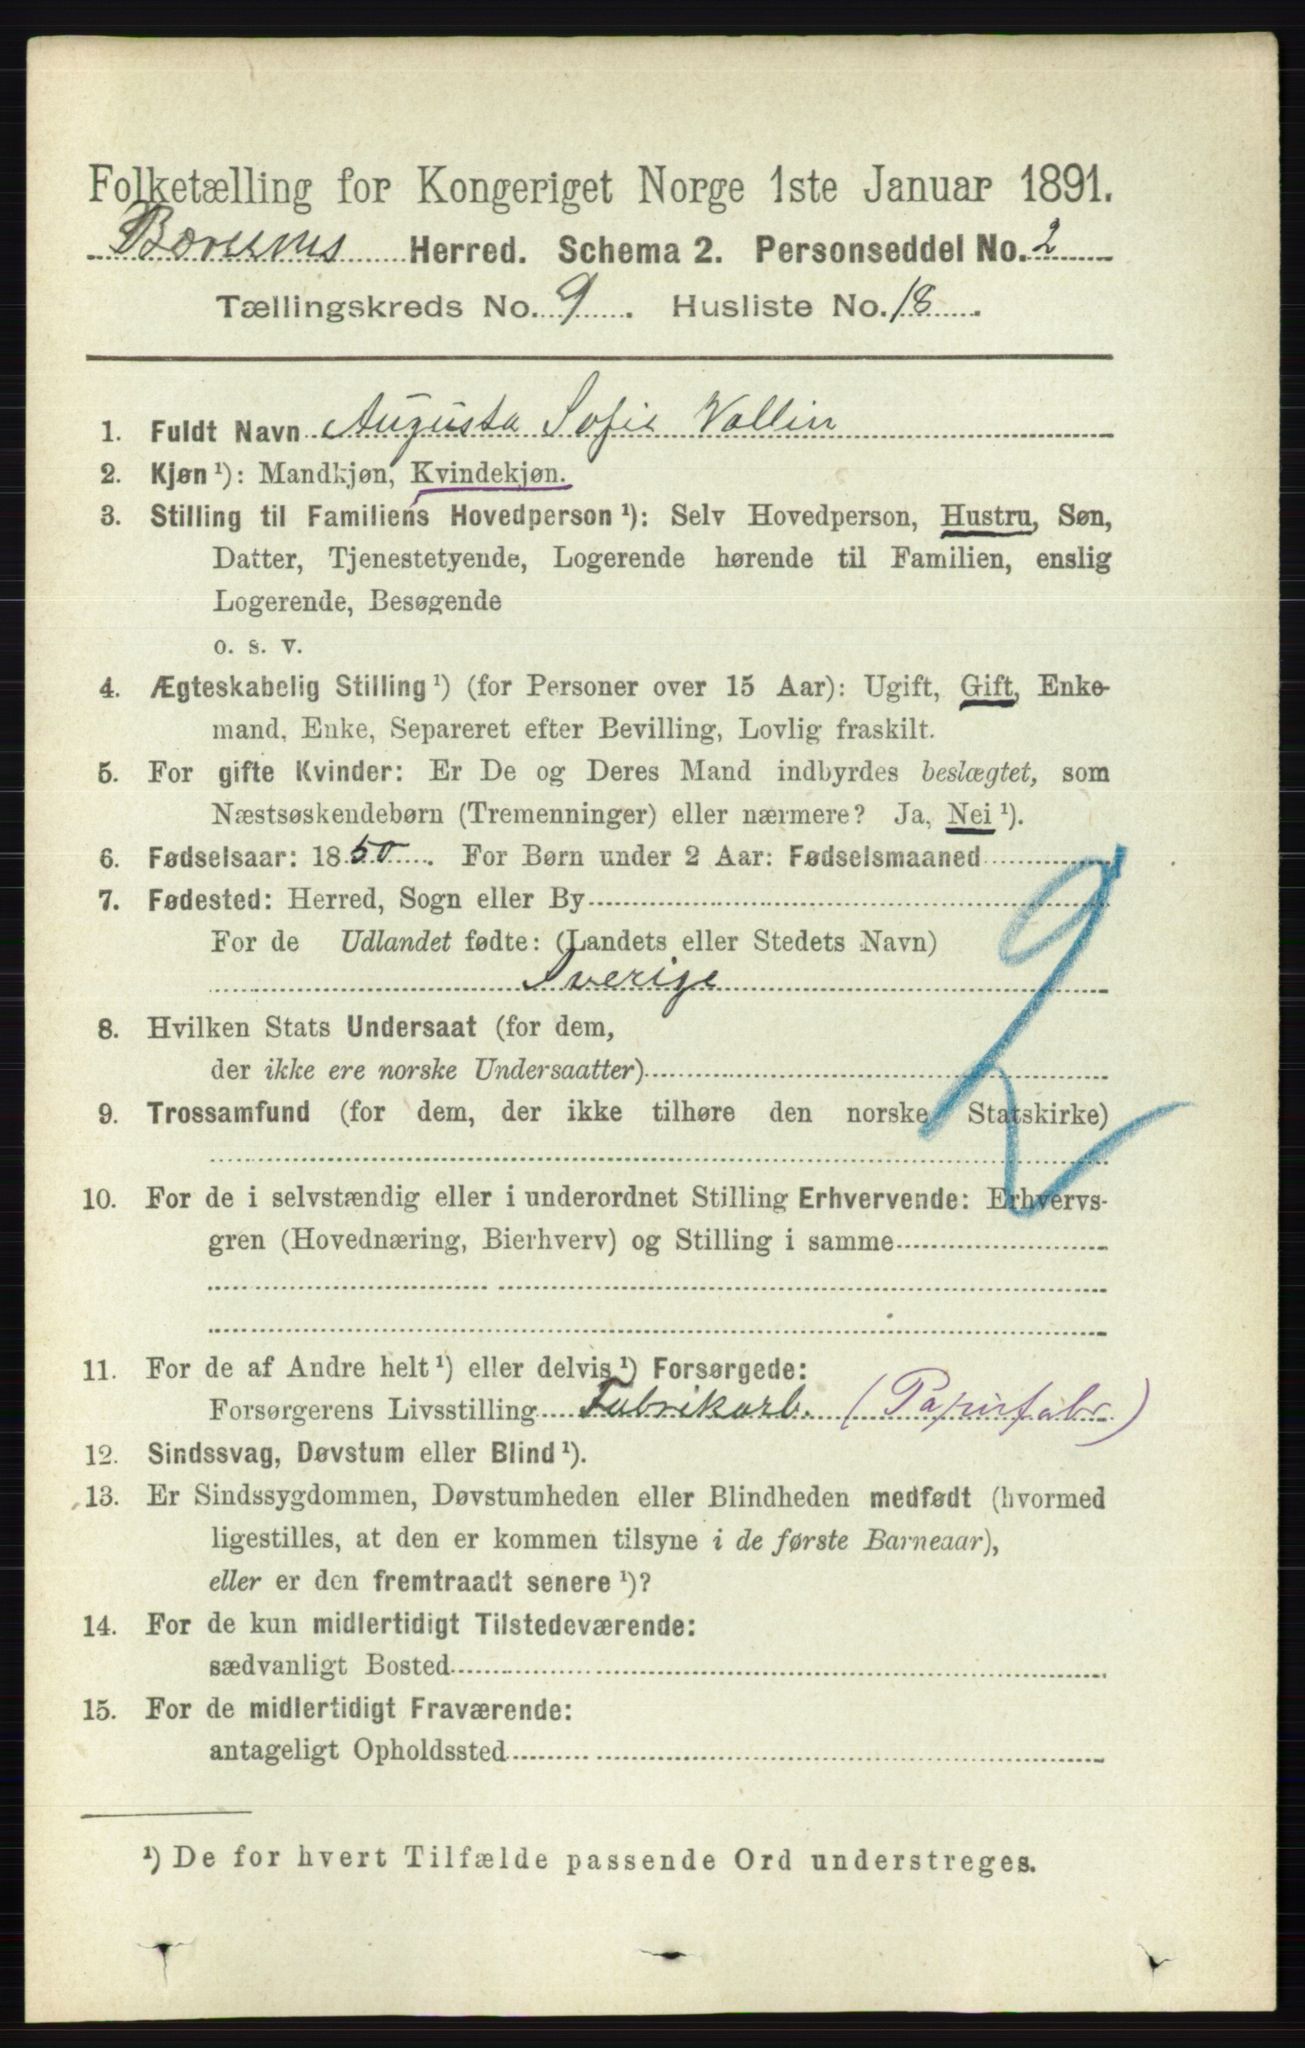 Folketælling for Kongeriget Norge 1ste Januar 1891.
Bærums Herred. Schema 2. Personseddel No. 2
Tællingskreds No. 9. Husliste No. 18.
1. Fuldt Navn Augusta Sofie Vallin
2. Kjøn ¹): Mandkjøn, Kvindekjøn.
3. Stilling til Familiens Hovedperson ¹): Selv Hovedperson, Hustru, Søn,
Datter, Tjenestetyende, Logerende hørende til Familien, enslig
Logerende, Besøgende
o. s. v.
4. Ægteskabelig Stilling ¹) (for Personer over 15 Aar): Ugift, Gift, Enke-
mand, Enke, Separeret efter Bevilling, Lovlig fraskilt.
5. For gifte Kvinder: Er De og Deres Mand indbyrdes beslægtet, som
Næstsøskendebørn (Tremenninger) eller nærmere? Ja, Nei ¹).
6. Fødselsaar: 1850. For Børn under 2 Aar: Fødselsmaaned
7. Fødested: Herred, Sogn eller By
For de Udlandet fødte: (Landets eller Stedets Navn)
Sverige
8. Hvilken Stats Undersaat (for dem,
der ikke ere norske Undersaatter)
9. Trossamfund (for dem, der ikke tilhøre den norske Statskirke)
10. For de i selvstændig eller i underordnet Stilling Erhvervende: Erhvervs-
gren (Hovednæring, Bierhverv) og Stilling i samme
11. For de af Andre helt ¹) eller delvis ¹) Forsørgede:
Forsørgerens Livsstilling Fabrikarb. (Papirfabr.)
12. Sindssvag, Døvstum eller Blind ¹).
13. Er Sindssygdommen, Døvstumheden eller Blindheden medfødt (hvormed
ligestilles, at den er kommen tilsyne i de første Barneaar),
eller er den fremtraadt senere ¹)?
14. For de kun midlertidigt Tilstedeværende:
sædvanligt Bosted
15. For de midlertidigt Fraværende:
antageligt Opholdssted
¹) De for hvert Tilfælde passende Ord understreges.